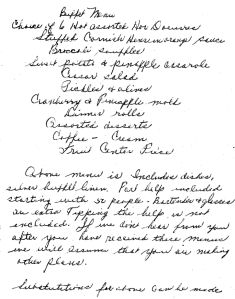 Buffet Menu
Choice of 6 Hot assorted Hor Doeuvres
Stuffed Cornish Hens in orange sauce
Broccoli souffles
Sweet potato & pineapple casarole
Caesar salad
Pickles & olives
Cranberry & Pineapple mold
Dinner rolls
Assorted desserts
Coffee - Cream
Fruit Center Piece
Above menu is Includes dishes,
silver buffet linen. Part help included
starting with 50 people - Bartender & glasses
an extra Tipping the help is not
included. If we don hear from you
after you have received these menus
we will assume that you are making
other plans.
Substitutions for above can be made